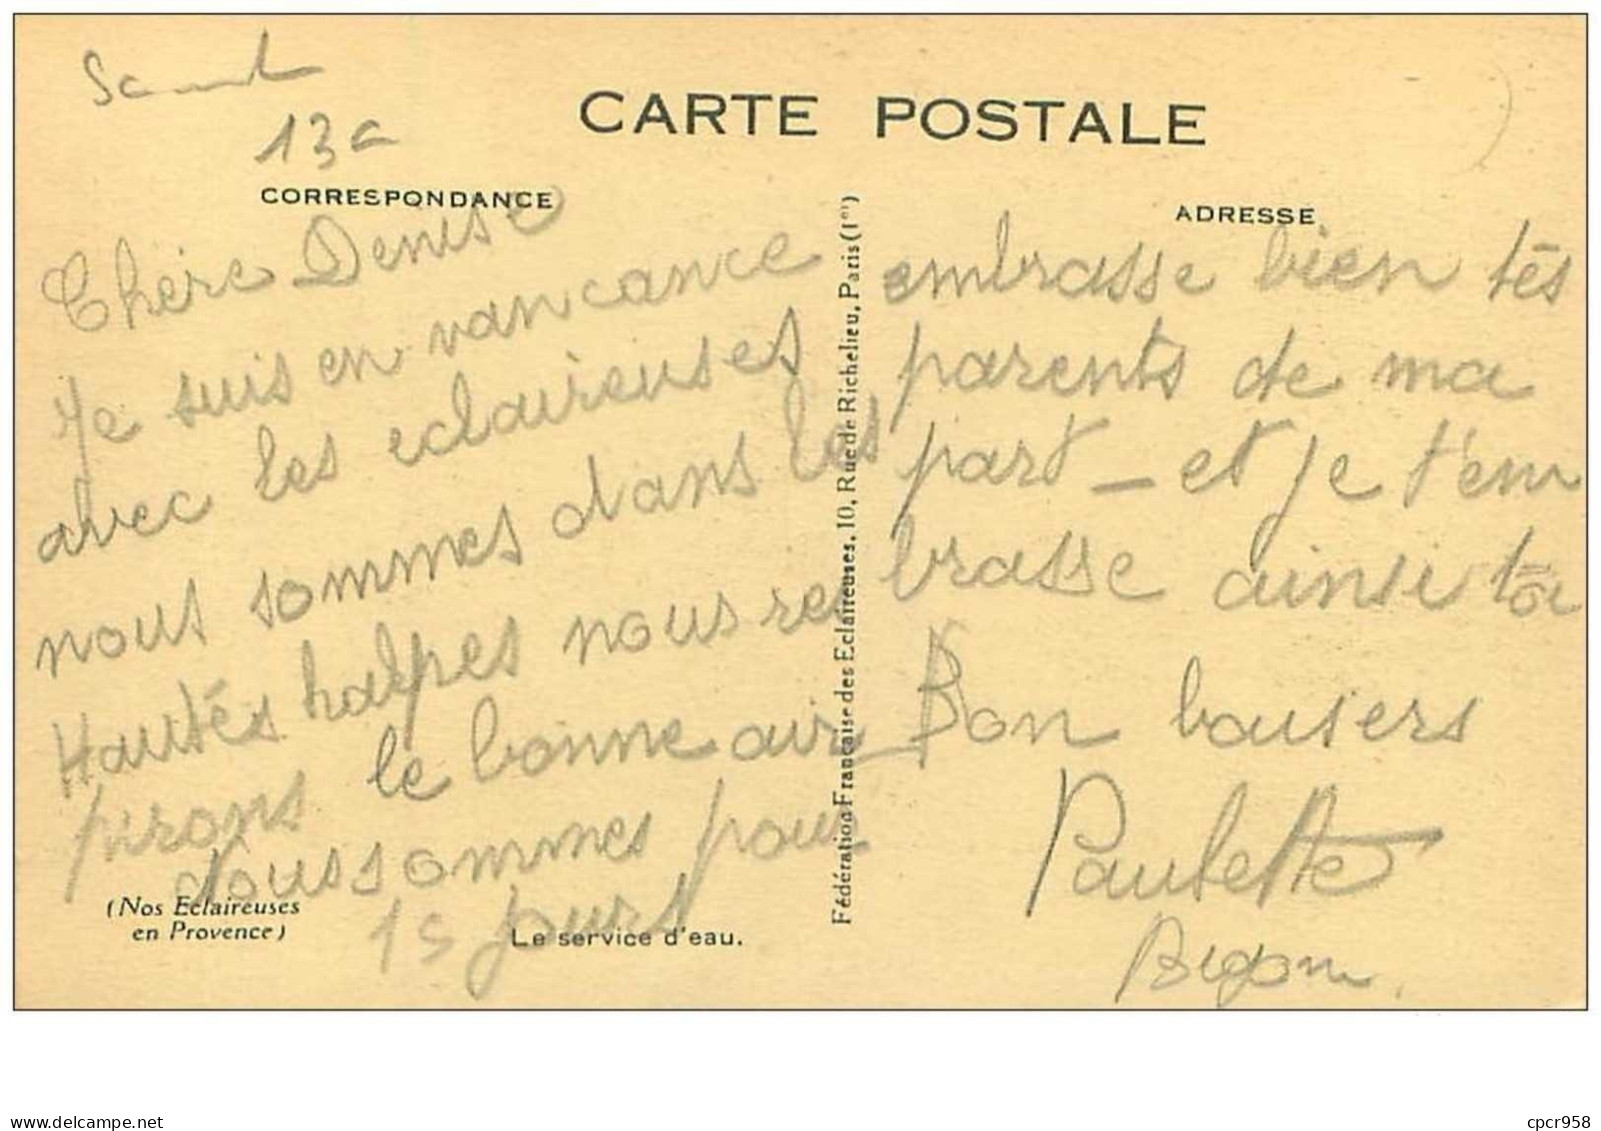 13a
CARTE POSTALE
CORRESPONDANCE
ADRESSE
Chère Denise
Je suis en vancance
avec les eclaireuses
nous sommes dans les
Hautés halpes nous res
pirons le bonne air
nous sommes pour
15 jours
(Nos Eclaireuses
en Provence)
Le service d'eau.
Fédération Française des Eclaireuses, 10, Rue de Richelieu, Paris (1er)
embrasse bien tés
parents de ma
part - et je t'em
brasse ainsi toi
Bon baisers
Paulette
www.delcampe.net
cpcr958